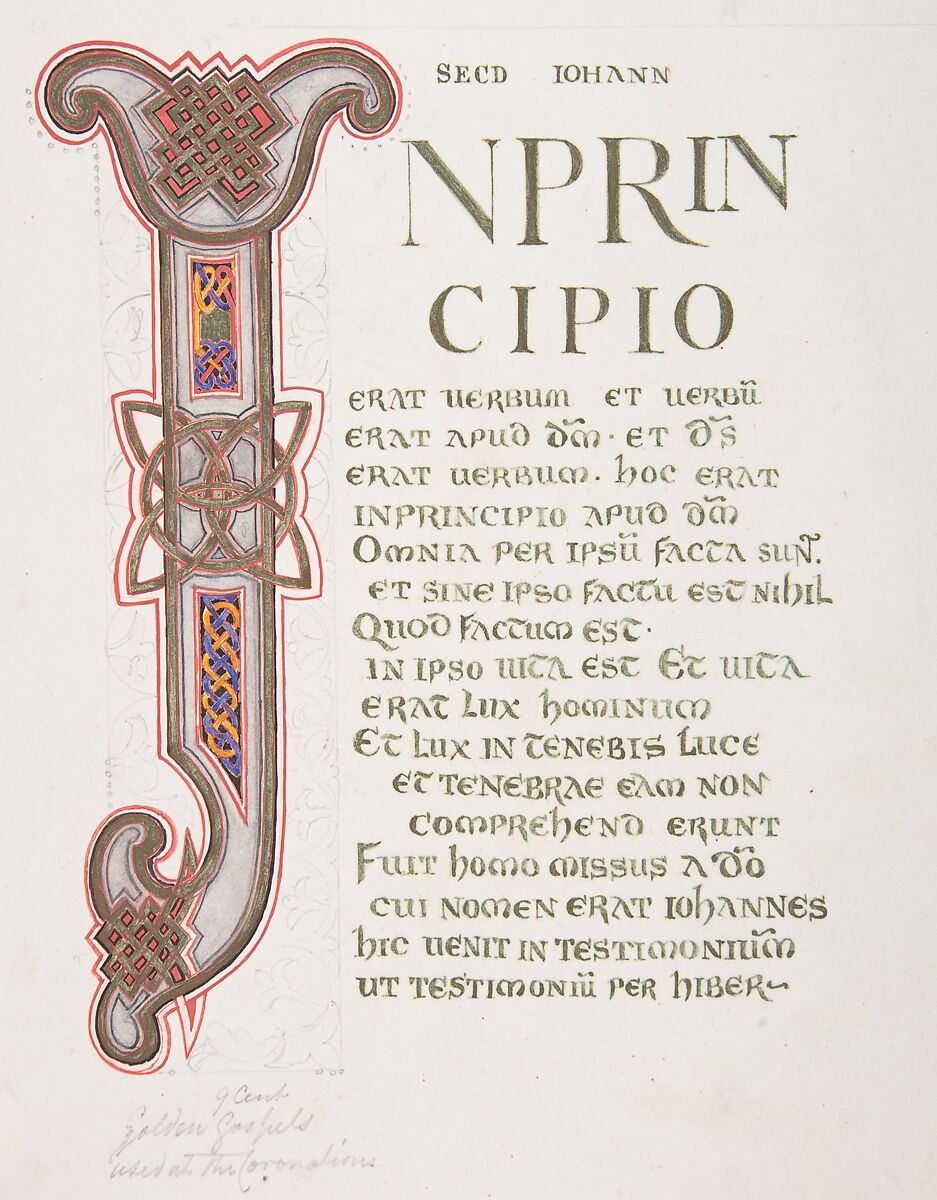 SECD IOHANN
INPRIN
CIPIO
ERAT UERBUM ET UERBŪ
ERAT APUD DM̄· ET D̄S
ERAT UERBUM· HOC ERAT
INPRINCIPIO APUD DM̄
OMNIA PER IPSŪ FACTA SUNT.
ET SINE IPSO FACTŪ EST NIHIL
QUOD FACTUM EST·
IN IPSO UITA EST ET UITA
ERAT LUX HOMINUM
ET LUX IN TENEBIS LUCE
ET TENEBRAE EAM NON
COMPREHEND ERUNT
FUIT HOMO MISSUS A DŌ
CUI NOMEN ERAT IOHANNES
HIC UENIT IN TESTIMONIUM̄
UT TESTIMONIŪ PER HIBER~
9 Cent
Golden Gospels
used at the Coronations